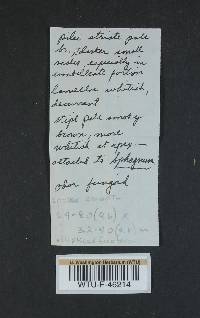 pileus striate pale
br, darker small
scales, especially in
umbilicate portion
lamellae whitish,
decurrent
stipe pale smoky
brown, more
whitish at apex –
attached to Sphagnum
odor fungoid
U. Washington Herbarium (WTU)
WTU-F-46214